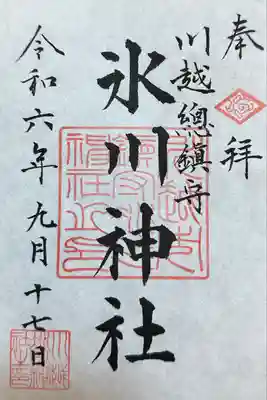 奉拝
川越總鎮守
氷川神社
令和六年九月十七日